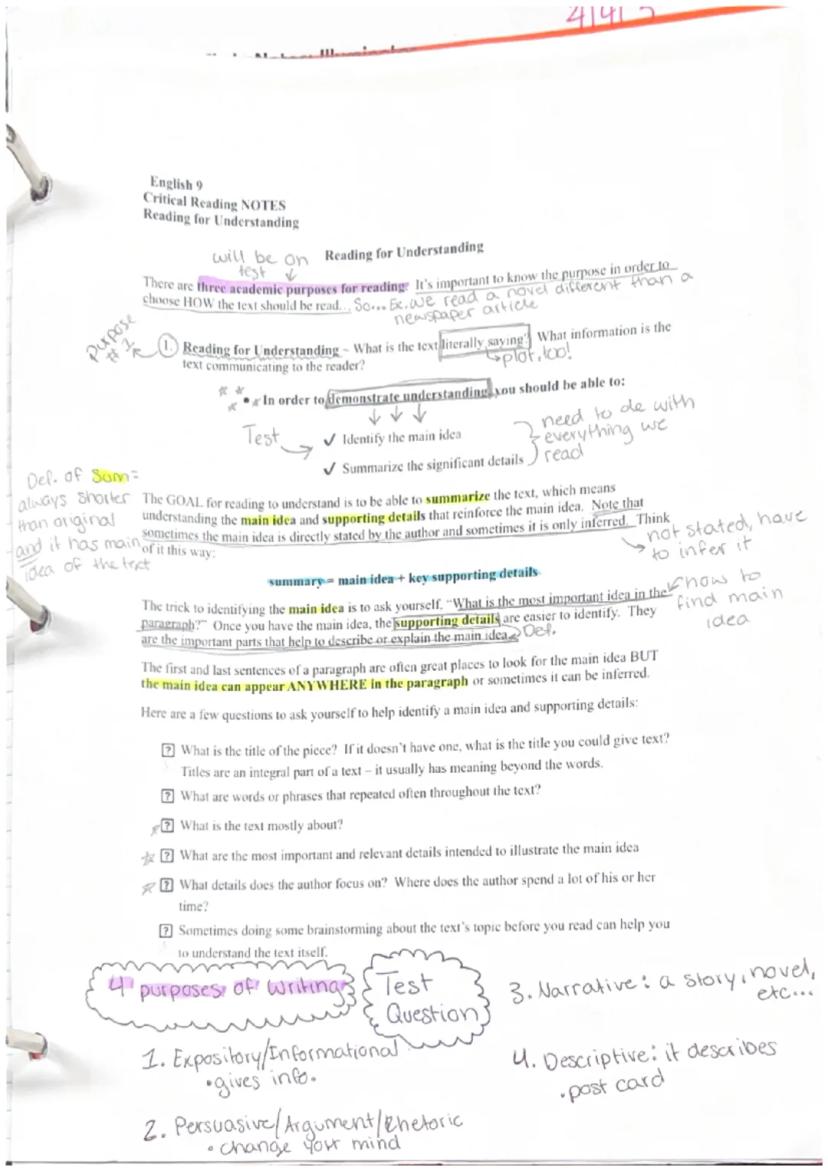 English 9
Critical Reading NOTES
Reading for Understanding
will be on
test ↓
Reading for Understanding
There are three academic purposes for reading: It's important to know the purpose in order to
choose HOW the text should be read... So... Ex. we read a novel different than a
newspaper article
Purpose
#1
1. Reading for Understanding – What is the text literally saying? What information is the
text communicating to the reader?
plot, too!
In order to demonstrate understanding, you should be able to:
Test
✓ Identify the main idea
✓ Summarize the significant details
need to de with
everything we
read
Def. of Sum=
always shorter
than original
and it has main
idea of the text
The GOAL for reading to understand is to be able to summarize the text, which means
understanding the main idea and supporting details that reinforce the main idea. Note that
sometimes the main idea is directly stated by the author and sometimes it is only inferred. Think
of it this way:
not stated, have
to infer it
summary = main idea + key supporting details
The trick to identifying the main idea is to ask yourself, "What is the most important idea in the
paragraph?" Once you have the main idea, the supporting details are easier to identify. They
are the important parts that help to describe or explain the main idea.
Def.
how to
find main
idea
The first and last sentences of a paragraph are often great places to look for the main idea BUT
the main idea can appear ANYWHERE in the paragraph or sometimes it can be inferred.
Here are a few questions to ask yourself to help identify a main idea and supporting details:
? What is the title of the piece? If it doesn't have one, what is the title you could give text?
Titles are an integral part of a text – it usually has meaning beyond the words.
? What are words or phrases that repeated often throughout the text?
? What is the text mostly about?
? What are the most important and relevant details intended to illustrate the main idea
? What details does the author focus on? Where does the author spend a lot of his or her
time?
? Sometimes doing some brainstorming about the text's topic before you read can help you
to understand the text itself.
4 purposes of writing
Test
Question
1. Expository/Informational
• gives info.
2. Persuasive/Argument/Rhetoric
• change your mind
3. Narrative: a story, novel,
etc...
4. Descriptive: it describes
• post card